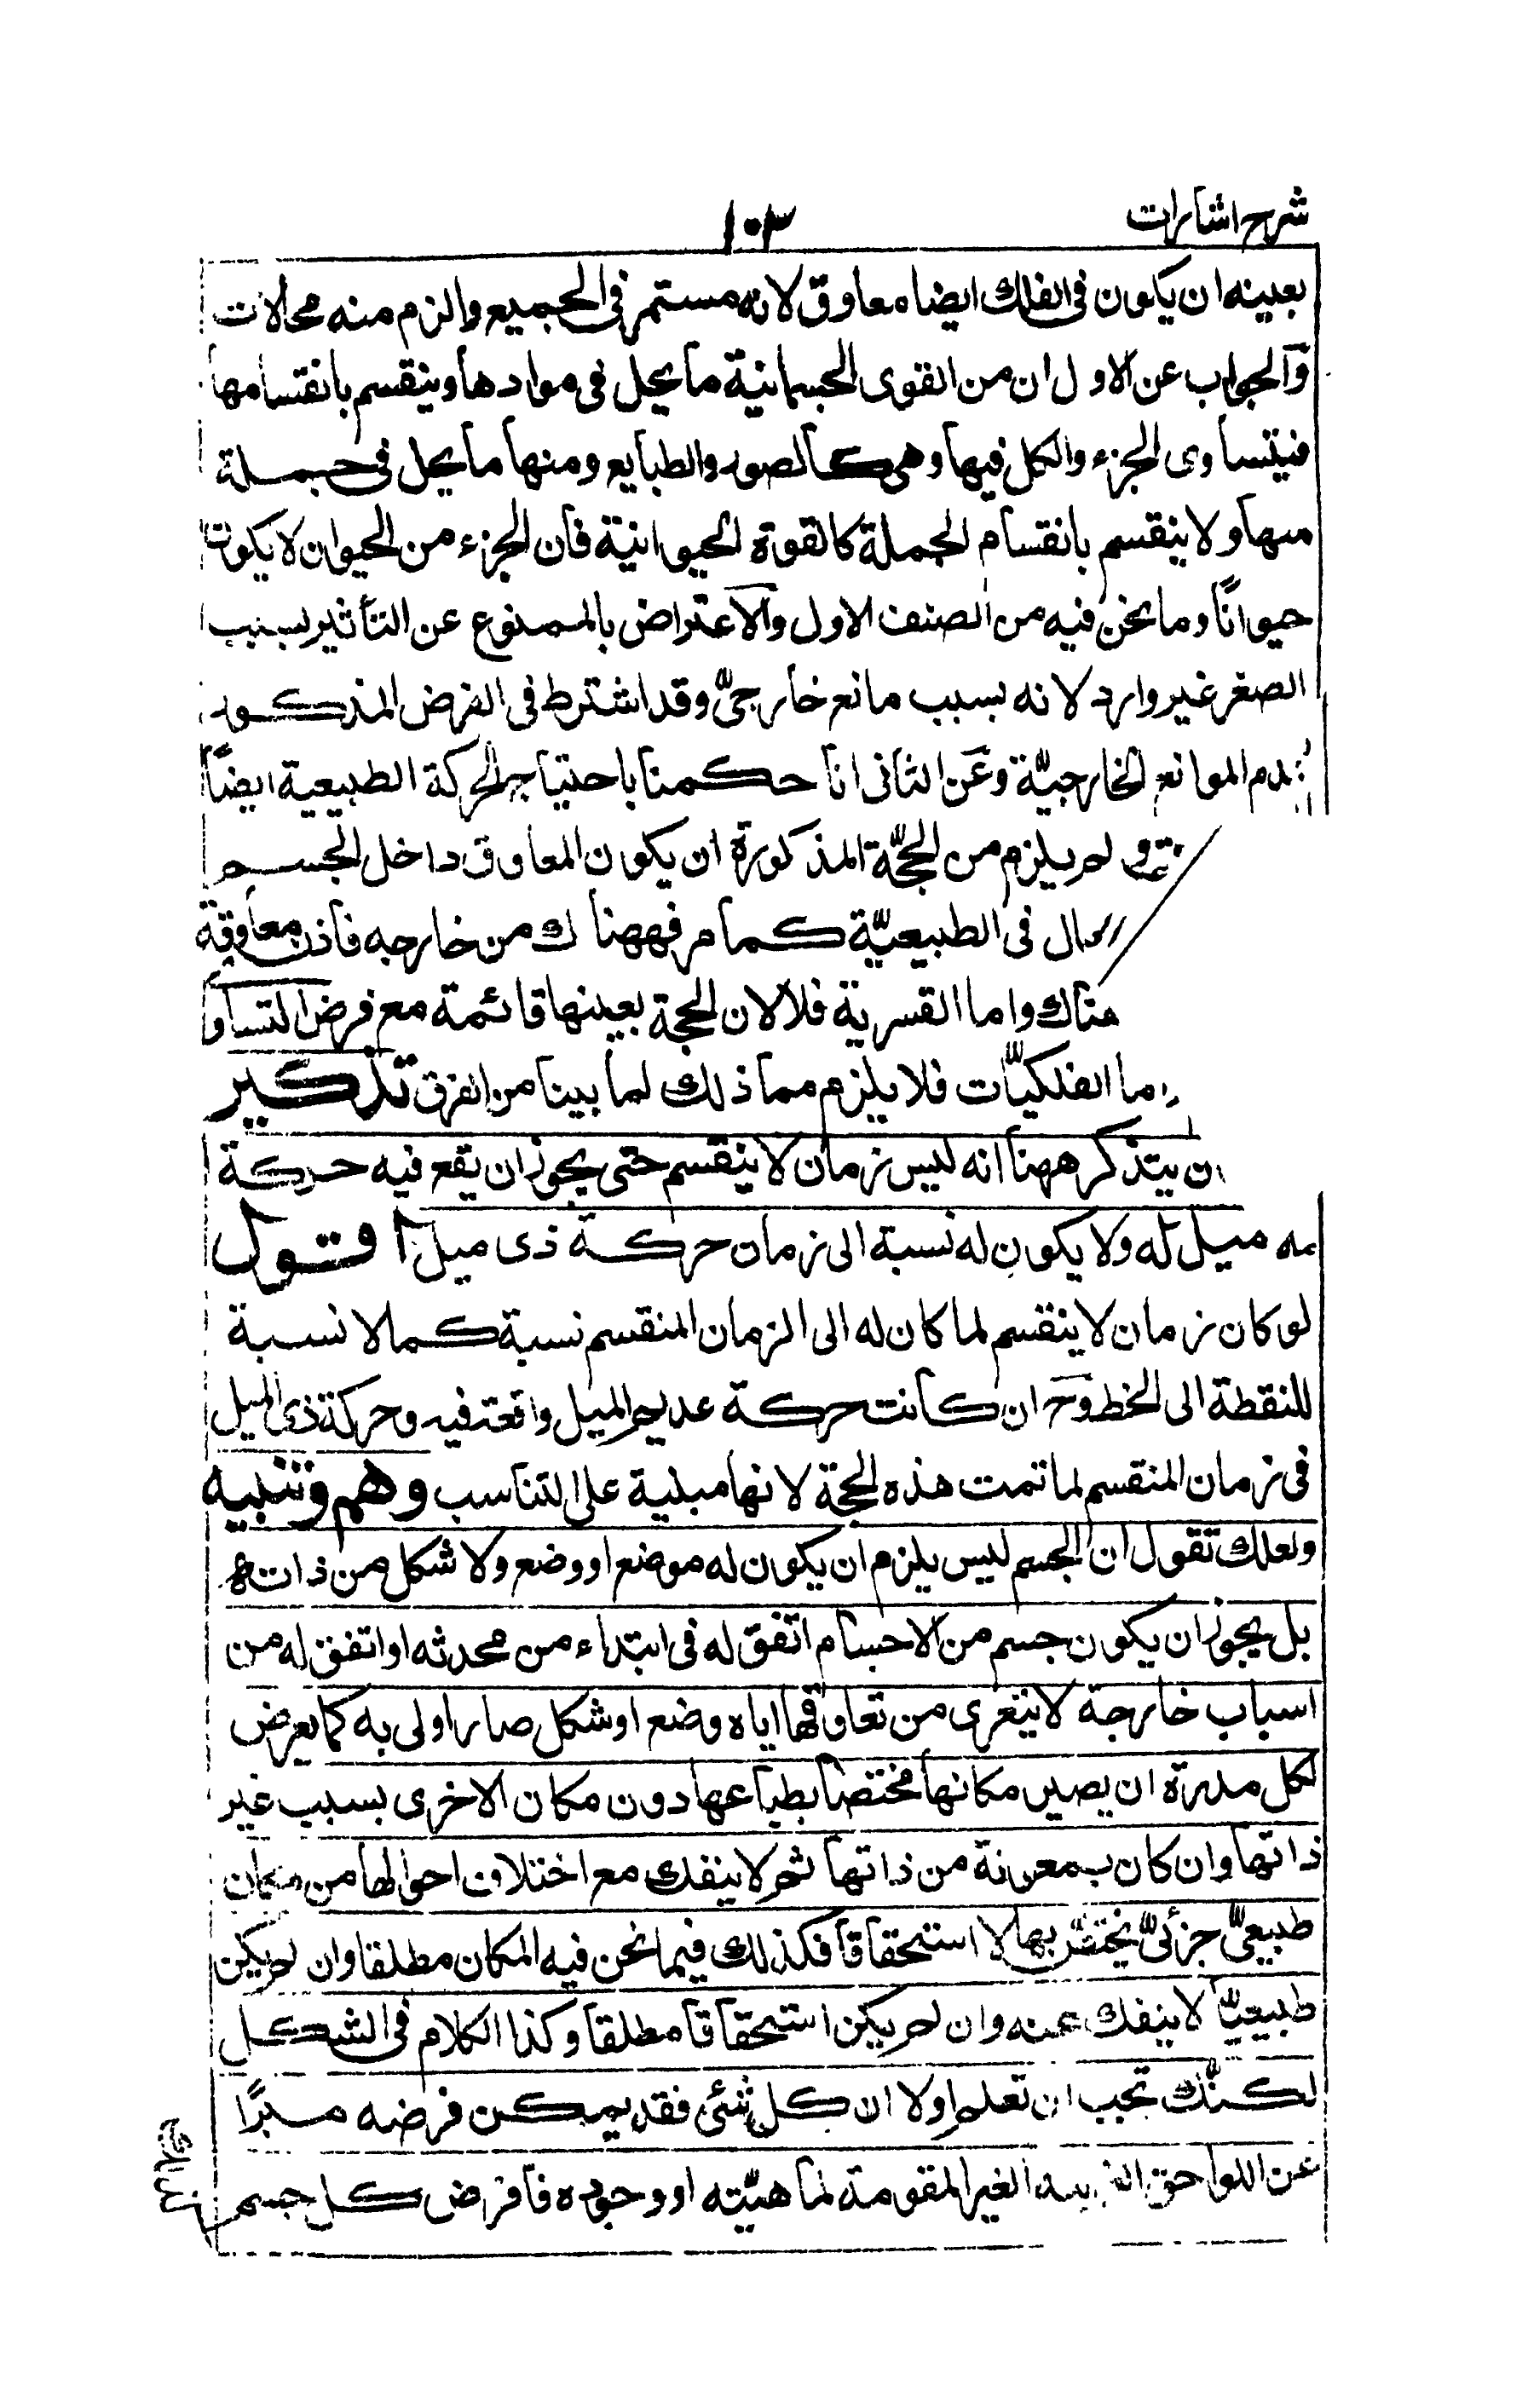 شرح اشارات
١٠٣
بعينه ان يكون فى الفلك ايضا معاوق لانه مستمر فى الجميع والزم منه محالات
والجواب عن الاول ان من القوى الجسمانية ما يحل فى موادها وينقسم بانقسامها
فيتساوى الجزء والكل فيها وهى كالصور والطبايع ومنها ما يحل فى جملة
منها ولا ينقسم بانقسام الجملة كالقوة الحيوانية فان الجزء من الحيوان لا يكون
حيوانًا وما نحن فيه من الصنف الاول والاعتراض بالممنوع عن التأثير بسبب
الصغر غير وارد لانه بسبب مانع خارجىّ وقد اشترط فى الفرض المذكور
الموانع الخارجيّة وعن الثانى انا حكمنا باحتياج الحركة الطبيعية ايضًا
لم يلزم من الحجّة المذكورة ان يكون المعاوق داخل الجسم
فى الطبيعيّة كما مر فههنا من خارجه فاذن معاوقة
هناك واما القسرية فلا لان الحجة بعينها قائمة مع فرض التساو
ما الفلكيّات فلا يلزم مما ذلك لما بينا من الفرق تذكير
ان يتذكر ههنا انه ليس زمان لا ينقسم حتى يجوز ان يقع فيه حركة
ميل له ولا يكون له نسبة الى زمان حركة ذى ميل اقول
لو كان زمان لا ينقسم لما كان له الى الزمان المنقسم نسبة كما لا نسبة
للنقطة الى الخط وح ان كانت حركة عديم الميل واقعة فيه وحركة ذى الميل
فى زمان المنقسم لما تمت هذه الحجة لانها مبنية على التناسب وهم وتنبيه
ولعلك تقول ان الجسم ليس يلزم ان يكون له موضع او وضع ولا شكل من ذاته
بل يجوز ان يكون جسم من الاجسام اتفق له فى ابتداء من محدثه او اتفق له من
اسباب خارجة لا يتعرى من تعاوقها اياه وضع او شكل صار اولى به كما يعرض
لكل مدرة ان يصير مكانها مختصا بطباعها دون مكان الاخرى بسبب غير
ذاتها وان كان بمعونة من ذاتها ثم لا ينفك مع اختلاف احوالها من مكان
طبيعىّ جزئىّ يختصّ بها لا استحقاقا فكذلك فيما نحن فيه المكان مطلقا وان لم يكن
طبيعيّا لا ينفك عنه وان لم يكن استحقاقا مطلقا وكذا الكلام فى الشكل
لكنّك تجب ان تعلم اولا ان كل شئى فقد يمكن فرضه مبرًا
عن اللواحق الغير المقومة لماهيّته او وجوده فافرض كل جسم